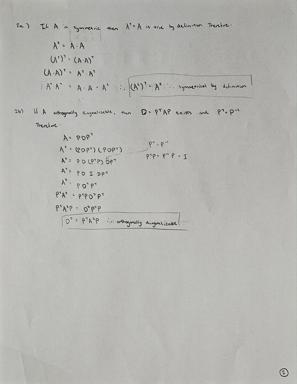 2a.) If A is symmetric then Aᵀ = A is true by definition. Therefore
A² = A·A
(A²)ᵀ = (A·A)ᵀ
(A·A)ᵀ = Aᵀ·Aᵀ
Aᵀ·Aᵀ = A·A = A² ∴ (A²)ᵀ = A² ∴ symmetrical by definition
2b) If A orthogonally diagonalizable, then D = PᵀAP exists and Pᵀ = P⁻¹
Therefore
A = PDPᵀ
A² = (PDPᵀ)(PDPᵀ) Pᵀ = P⁻¹
A² = PD(PᵀP)DPᵀ PᵀP = P⁻¹P = I
A² = PD I DPᵀ
A² = PD²Pᵀ
PᵀA² = PᵀPD²Pᵀ
PᵀA²P = D²PᵀP
D² = PᵀA²P ∴ orthogonally diagonalizable